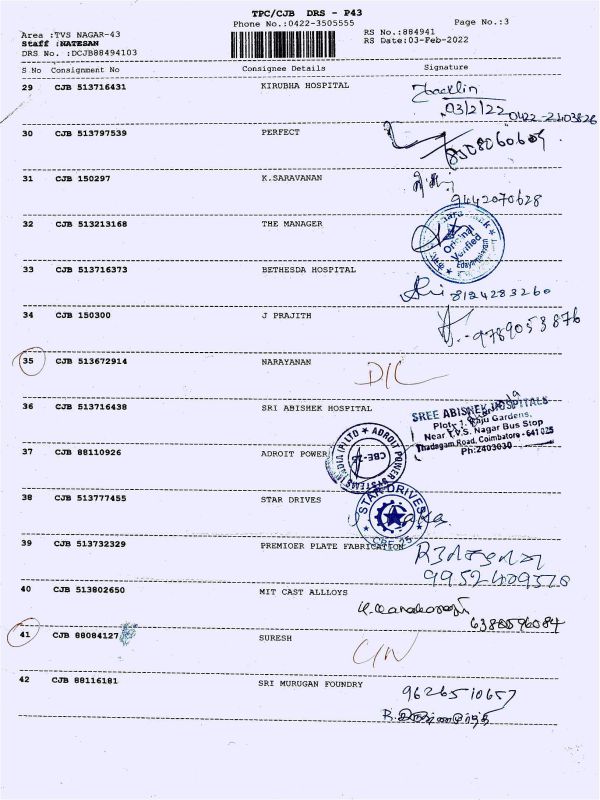 TPC/CJB DRS - P43
Phone No.:0422-3505555
Page No.:3
Area :TVS NAGAR-43
RS No.:884941
Staff :NATESAN
RS Date:03-Feb-2022
DRS No. :DCJB88494103
S No Consignment No Consignee Details Signature
29 CJB 513716431 KIRUBHA HOSPITAL
03/2/22 0422-2403826
30 CJB 513797539 PERFECT
31 CJB 150297 K.SARAVANAN
9442070628
32 CJB 513213168 THE MANAGER
Original
Verified
33 CJB 513716373 BETHESDA HOSPITAL
8124283260
34 CJB 150300 J PRAJITH
9789053876
35 CJB 513672914 NARAYANAN
D/L
36 CJB 513716438 SRI ABISHEK HOSPITAL
SREE ABISHEK HOSPITALS
Plot- 1, Raju Gardens,
Near T.V.S. Nagar Bus Stop
Thadagam Road, Coimbatore - 641 025
Ph:2403030
37 CJB 88110926 ADROIT POWER
ADROIT POWER SYSTEMS INDIA (P) LTD
CBE-25
38 CJB 513777455 STAR DRIVES
STAR DRIVES
CBE-25
39 CJB 513732329 PREMIOER PLATE FABRICATION
9952409378
40 CJB 513802650 MIT CAST ALLLOYS
6380596084
41 CJB 88084127 SURESH
42 CJB 88116181 SRI MURUGAN FOUNDRY
9626510657